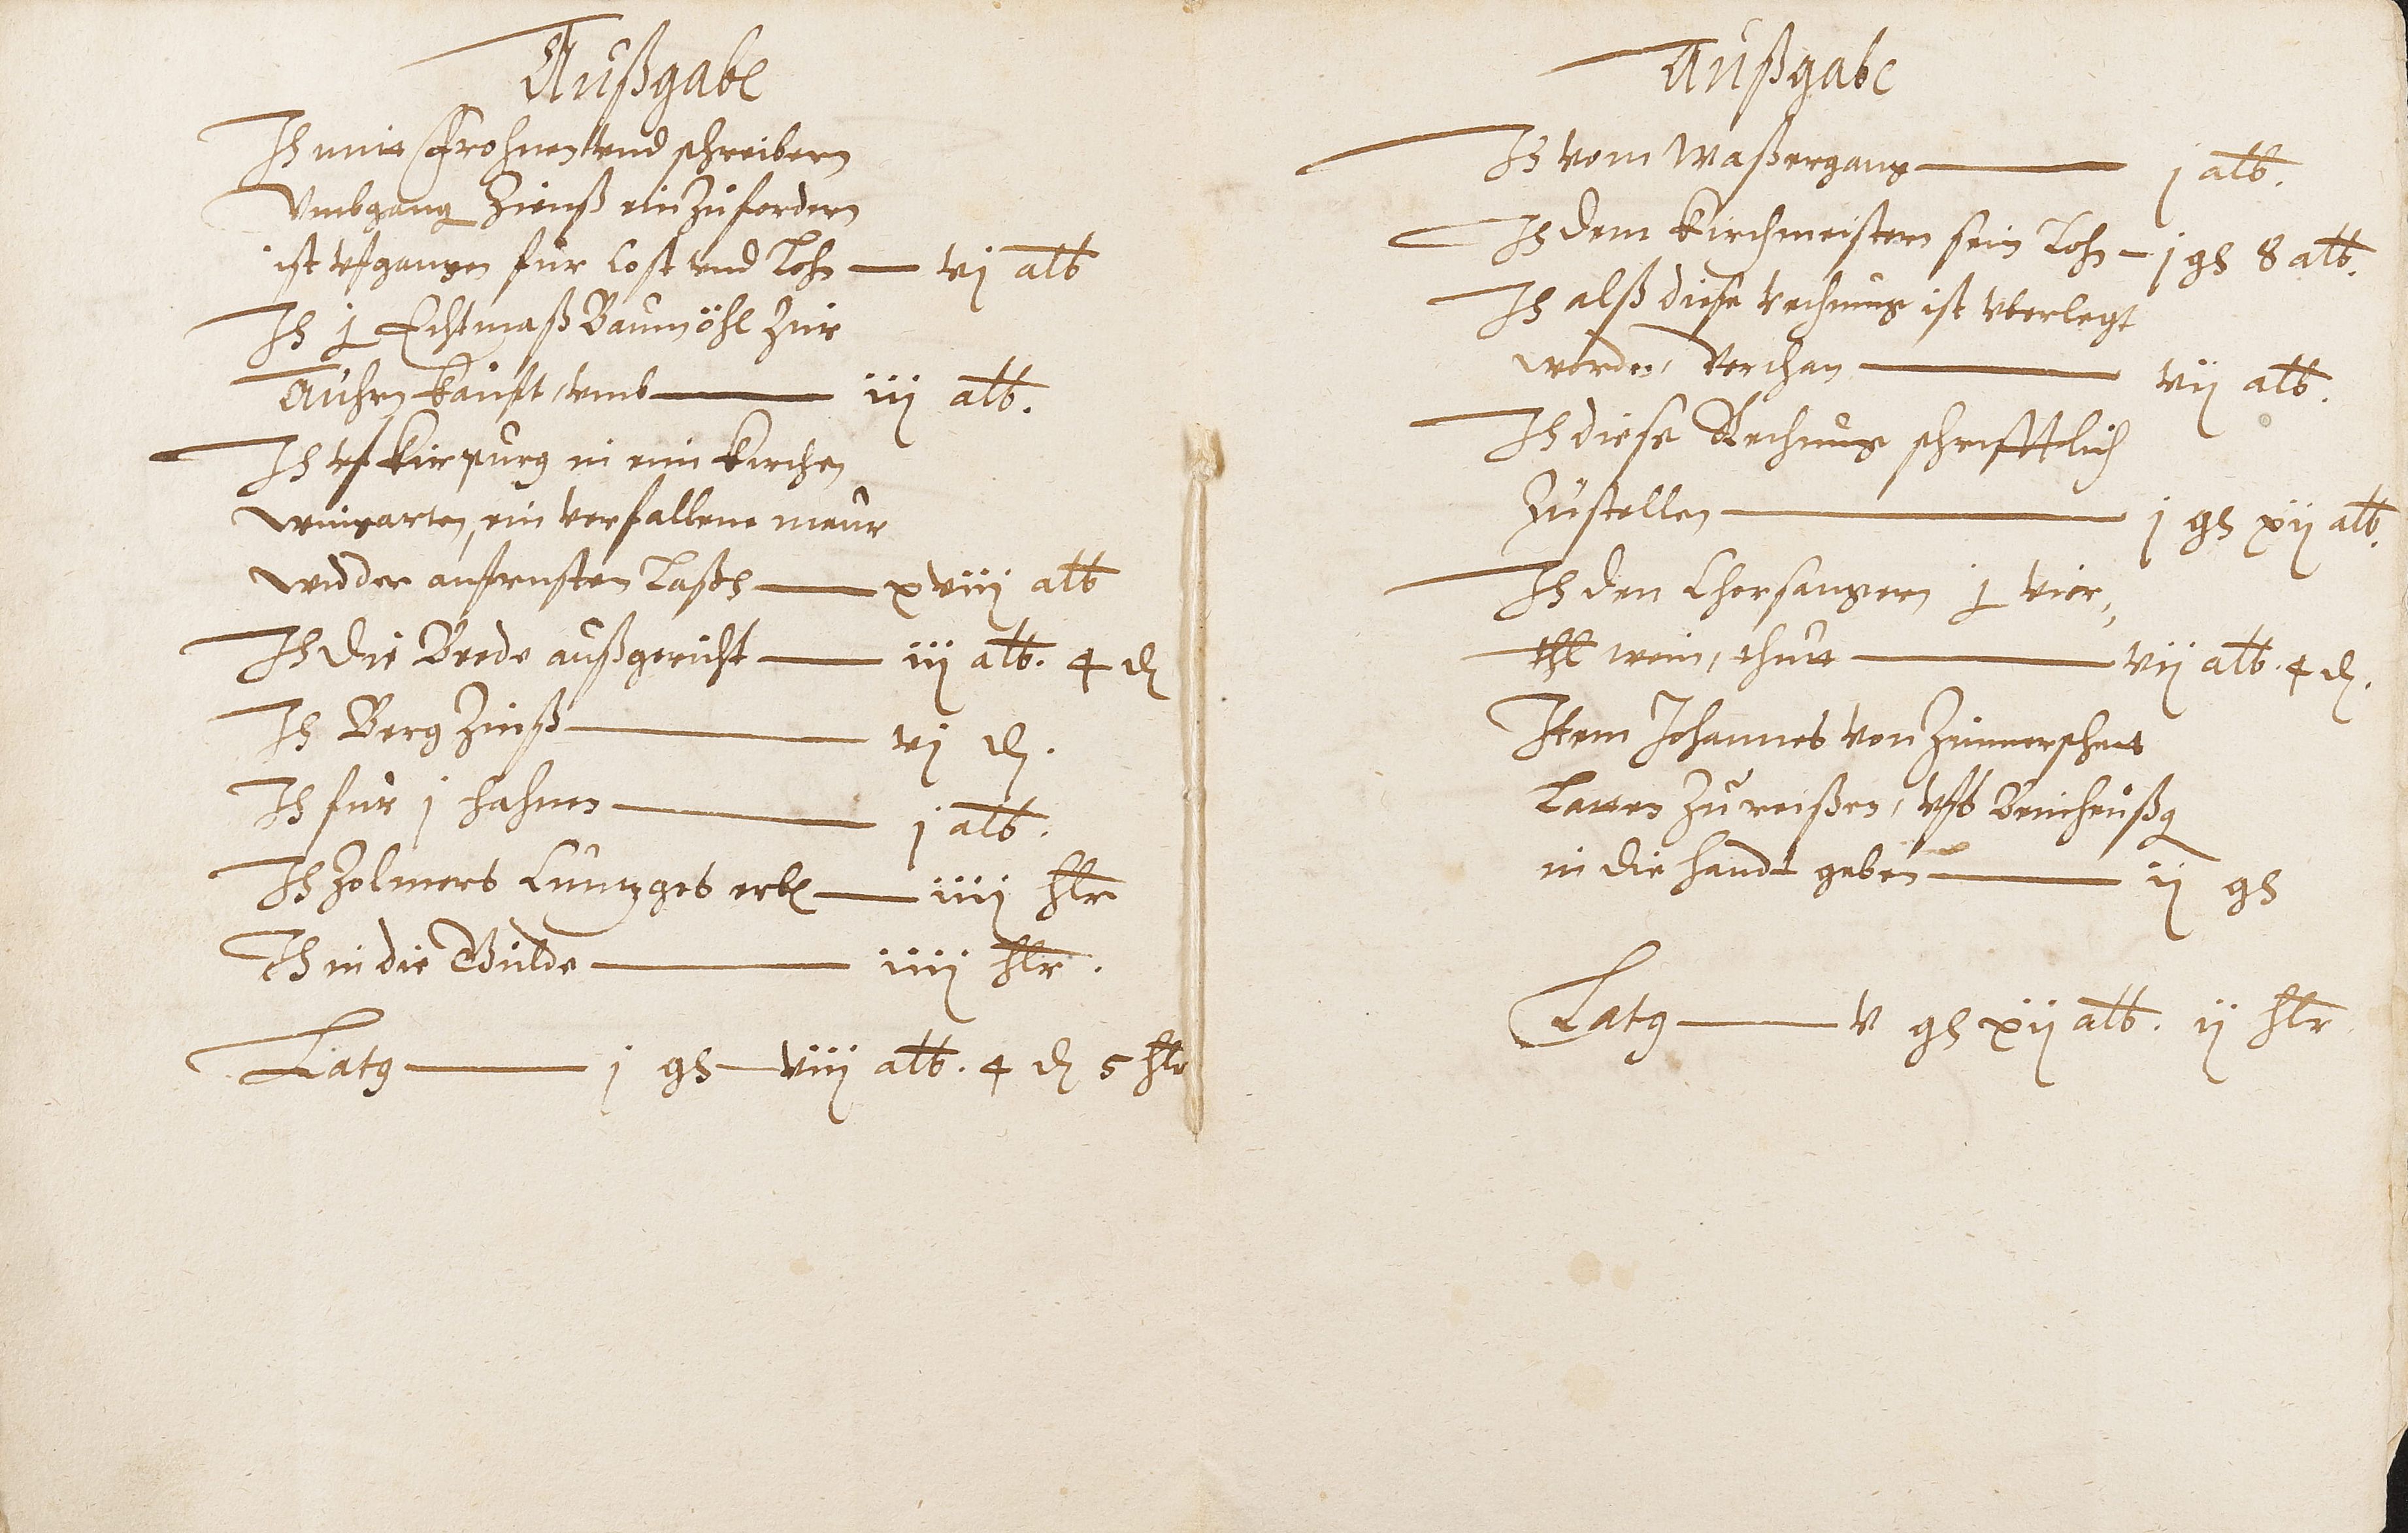 Außgabe
Jt mitt Frohnen vnd schreibern
Vmbgang Zienß ein Zufordern
ist vfgangen fur Cost vnd Lohn — vj alb
Jt j Echtmaß Baumöhl Zur
Auhrn kaufft, vmb — iij alb.
Jt vf Kirpurg in ein Kirchen
wingarten, ein verfallene maur
widder laßen — xviij alb
Jt die Beede außgericht — iij alb. 4 ₰
Jt Berg Zinß — vj ₰.
Jt fur j hahnen — j alb.
Jt Zolmers Cuntzges erb — iiij hlr
Jt in die Gulde — iiij hlr.
Latq — j gl — viij alb. 4 ₰ 5 hlr
Außgabe
Jt vom Waßergang — j alb.
Jt dem Kirchmeistern sein Lohn — j gl 8 alb.
Jt alß diese rechnung ist vberlegt
worden, verthan — vij alb.
Jt diese Rechnung schrifftlich
Zustellen — j gl xij alb.
Jt den Chorsangern j vier„
thl wein, thutt — vij alb. 4 ₰.
Item Johannes von Zimmerschent
Latten Zu reißen, vfs
in die handt geben — ij gl
Latq — v gl xij alb. ij hlr